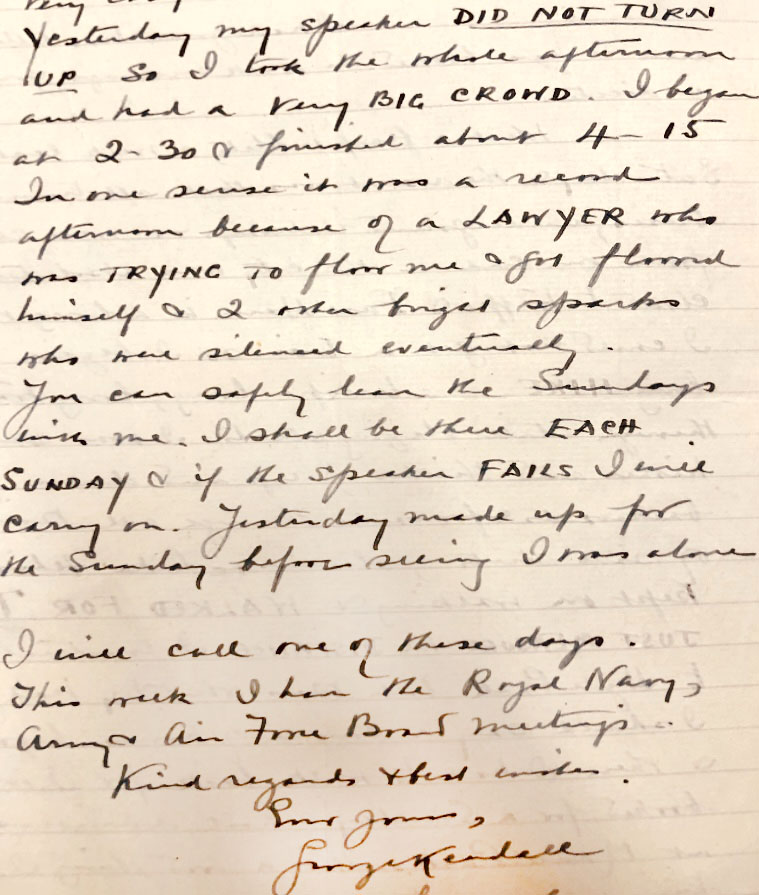 Yesterday my speaker DID NOT TURN
UP So I took the whole afternoon
and had a very BIG CROWD. I began
at 2-30 & finished about 4-15
In one sense it was a record
afternoon because of a LAWYER who
was TRYING TO floor me & got floored
himself & 2 other bright sparks
who were silenced eventually.
You can safely leave the Sundays
with me. I shall be there EACH
SUNDAY & if the speaker FAILS I will
carry on. Yesterday made up for
the Sunday before seeing I was alone
I will call one of these days.
This week I have the Royal Navy,
Army & Air Force Board meetings.
Kind regards & best wishes.
Ever yours,
George Kendall